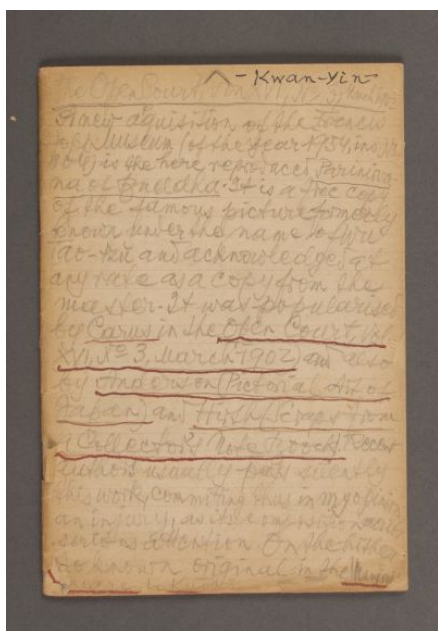 - Kwan-Yin -
the Open Court, Vol. XVI, No 3, March 1902
A new aquisition of the Francis
Hopp Museum (of the year 1954, inv.
) is the here reproduced Parinirva-
na of Buddha. It is a free copy
of the famous picture formerly
known under the name of Wu
Tao-tzu and acknowledged at
any rate as a copy from the
master. It was popularised
by Carus in the Open Court, Vol.
XVI, No 3, March 1902) and also
by Anderson (Pictorial Art of
Japan) and Hirth (Scraps from
a Collector's Note Book). Recent
authors usually pass silently
this work, commiting thus in my opinion
an injury, as its composition
serious attention. On the hither-
to known original in the